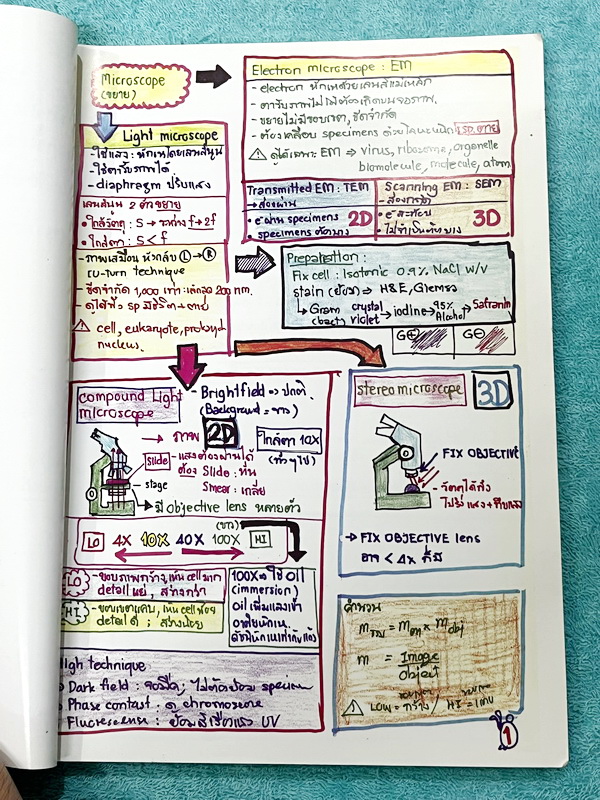 Microscope
(ขยาย)
Electron microscope : EM
- electron หักเหด้วยเลนส์แม่เหล็ก
- ตารับภาพไม่ได้ต้องเกิดบนจอภาพ
- ขยายไม่มีขอบเขต, ขีดจำกัด
- ต้องเคลือบ specimens ด้วยโลหะหนัก sp. ตาย
ดูได้เฉพาะ EM ⇒ virus, ribosome, organelle
biomolecule, molecule, atom
Light microscope
- ใช้แสง : หักเหโดยเลนส์นูน
- ใช้ตารับภาพได้
- diaphragm ปรับแสง
เลนส์นูน 2 ตัวขยาย
• ใกล้วัตถุ : S → ระหว่าง f → 2f
• ใกล้ตา : S < f
- ภาพเสมือน หัวกลับ L → R
ru-turn technique
- ขีดจำกัด 1,000 เท่า : เล็กสุด 200 nm.
- ดูได้ทั้ง sp มีชีวิต + ตาย
cell, eukaryote, protozoa
nucleus.
Transmitted EM : TEM
→ ส่องผ่าน
• e⁻ ผ่าน specimens 2D
• specimens ตัดบาง
Scanning EM : SEM
→ ส่องกราด
• e⁻ สะท้อน 3D
• ไม่จำเป็นตัดบาง
Preparation :
Fix cell : Isotonic 0.9% NaCl w/v
stain (ย้อม) ⇒ H&E, Giemsa
→ Gram (bact) crystal violet → iodine → 95% Alcohol → Safranin
G⊕ G⊖
compound Light
microscope
- Brightfield ⇒ ปกติ
(Background = ขาว)
→ ภาพ 2D ใกล้ตา 10X
(ทั่วๆไป)
slide - แสงต้องผ่านได้
ต้อง Slide : หั่น
Smear : เกลี่ย
stage
→ มี objective lens หลายตัว
(ขาว)
LO 4X 10X 40X 100X HI
LO - ขอบภาพกว้าง, เห็น cell มาก
detail แย่, สว่างกว่า
HI - ขอบเขตแคบ, เห็น cell น้อย
detail ดี ; สว่างน้อย
100X ⇒ ใช้ oil
(immersion)
Oil เพิ่มแสงเข้า
stereo microscope 3D
FIX OBJECTIVE
- วัตถุได้ทั้ง
โปร่งแสง + ทึบแสง
→ FIX OBJECTIVE lens
อาจ < 4x ก็มี
คำนวณ
m รวม = m ตา x m obj
m = Image
Object
LOW = กว้าง / HI = แคบ
High technique
Dark field : จอมืด ; ไม่ต้องย้อม specimen
Phase contast : ดู chromosome
Fluorescense : ย้อมสีเรืองแสง UV
1